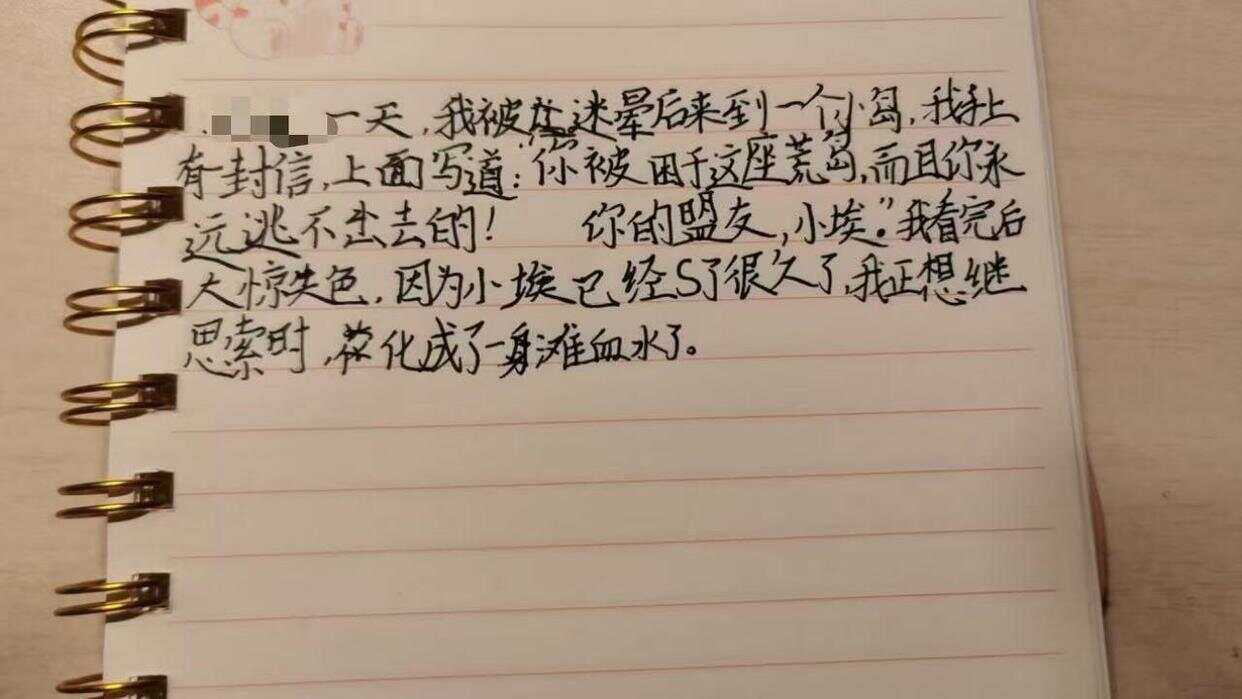 一天，我被迷晕后来到一个小岛，我手上
有封信，上面写道：“你被困于这座荒岛，而且你永
远逃不出去的！ 你的盟友，小埃。”我看完后
大惊失色，因为小埃已经S了很久了，我正想继
思索时，化成了一身滩血水了。